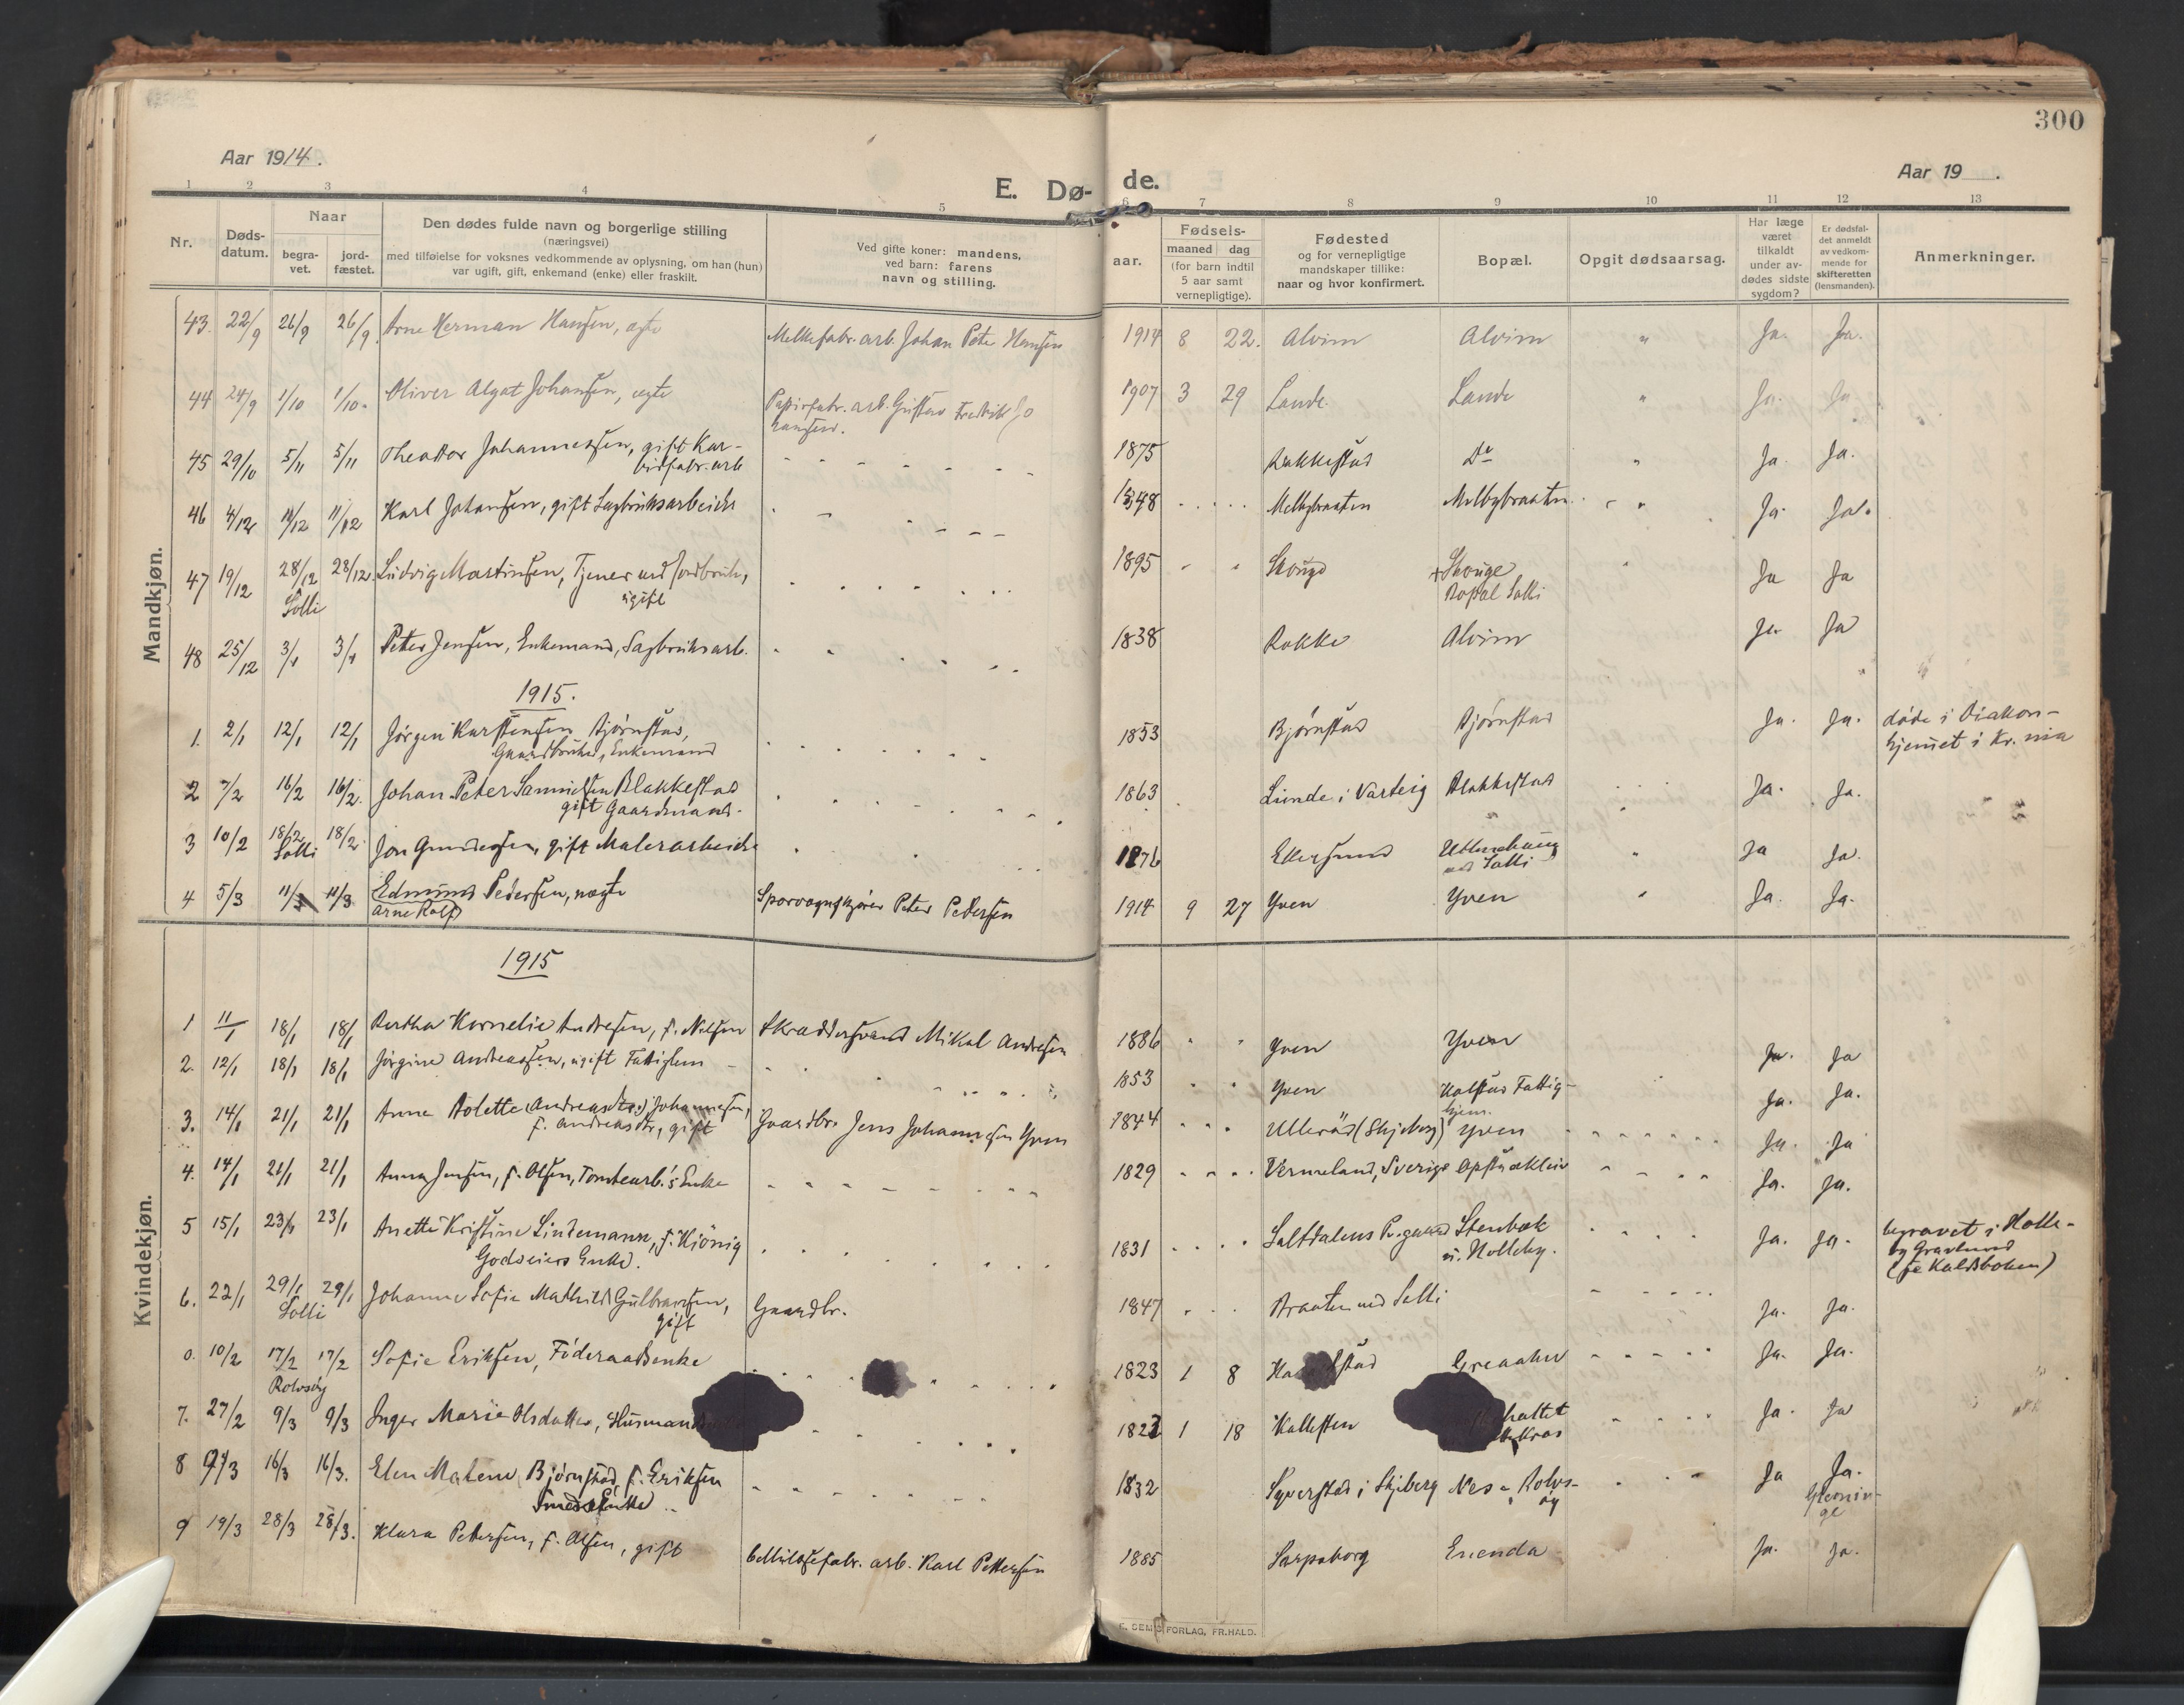 300
Aar 1914.
Aar 19 .
E. Dø- de.
1 2 3 4 5 6 7 8 9 10 11 12 13
Nr.
Døds-
datum.
Naar
begra-
vet.
jord-
fæstet.
Den dødes fulde navn og borgerlige stilling
(næringsvei)
med tilføielse for voksnes vedkommende av oplysning, om han (hun)
var ugift, gift, enkemand (enke) eller fraskilt.
Ved gifte koner: mandens,
ved barn: farens
navn og stilling.
aar.
Fødsels-
maaned dag
(for barn indtil
5 aar samt
vernepligtige).
Fødested
og for vernepligtige
mandskaper tillike:
naar og hvor konfirmert.
Bopæl.
Opgit dødsaarsag.
Har læge
været
tilkaldt
under av-
dødes sidste
sygdom?
Er dødsfal-
det anmeldt
av vedkom-
mende for
skifteretten
(lensmanden).
Anmerkninger.
Mandkjøn.
43. 22/9 26/9 26/9 Arne Herman Hansen, ægte Melkefabr. arb. Johan Peter Hansen 1914 8 22. Alvim Alvim " Ja. Ja.
44 24/9 1/10 1/10. Oliver Algot Johansen, ægte Papirfabr. arb. Gustav Fredrik Jo 1907 3 29 Lande. Lande " Ja. Ja
hansen.
45 29/10 5/11 5/11 Theodor Johannessen, gift Kar- 1875 Rakkestad Do " Ja. Ja.
bidfabr. arb
46 4/12 11/12 11/12 Karl Johansen, gift Sagbruksarbeider 1848 Melbybraaten Melbybraaten " Ja. Ja.
47 19/12 28/12 28/12. Ludvig Martinsen, Tjener ved Jordbruk, 1895 " " Skouge + Skouge " Ja Ja
Solli ugift Bopæl Solli
48 25/12 3/1 3/1 Peter Jensen, Enkemand, Sagbruksarb. 1838 Rokke Alvim Ja Ja
1915.
1. 2/1 12/1 12/1 Jørgen Karstensen Bjørnstad, 1853 Bjørnstad Bjørnstad Ja. Ja. døde i Diakon-
Gaardbruker, Enkemand hjemmet i Kr. nia
2 7/2 16/2 16/2. Johan Peter Samuelsen Blakkestad 1863 Lunde i Varteig Blakkestad Ja. Ja.
gift Gaardmand.
3 10/2 18/2 18/2. Jon Gundersen, gift Malerarbeider 1876 Ekersund Ja Ja.
Solli ved Solli
4 5/3 11/3 11/3 Edmund Pedersen, uægte Sporvognskjører Peter Pettersen 1914 9 27 Yven Yven " Ja. Ja.
Arne Rolf
Kvindekjøn.
1915
1 11/1 18/1 18/1 Bertha Kornelie Andresen, f. Nilsen Skræddersvend Mikal Andresen 1886 " " Yven Yven Ja. Ja
2. 12/1 18/1 18/1 Jørgine Andreassen, ugift Fattiglem 1853 " " Yven Kalstad Fattig- Ja. Ja.
hjem.
3. 14/1 21/1 21/1 Anne Bolette (Andreasdtr.) Johannesen, Gaardbr. Jens Johannesen Yven 1844 Ullerøs (Skjeberg) Yven Ja. Ja
f. Andreasdtr, gift
4. 14/1 21/1 21/1 Anna Jensen, f. Olsen, Tomtearb.'s Enke 1829 Vermeland, Sverige Opstadkleiv Ja. Ja.
5 15/1 23/1 23/1 Anette Kristine Lindemann, f. Kiønig 1831 Saltdalens Stenbæk Ja. Ja. begravet i Holle-
Godseiers Enke. n. Holleby. by Gravlund
(se Kaldsboken)
6. 22/1 29/1 29/1 Johanne Sofie Mathild Gulbransen, Gaardbr. 1847 Braaten ved Solli Ja. Ja.
Solli gift
0. 10/2 17/2 17/2 Sofie Eriksen, Føderaadsenke 1823 1 8 Greaaker Ja. Ja.
Rolvsøy
7. 27/2 9/3 9/3 Inger Marie Olsdatter, Husmands 1823 1 18 Kallesten Ja. Ja
8 9/3 16/3 16/3. Elen Malene Bjørnstad, f. Eriksen 1832 Syverstad i Skjeberg Nes i Rolvs- Ja Ja.
Smeds Enke øy Glemmin-
ge
9 19/3 28/3 28/3. Klara Pettersen, f. Olsen, gift Cellulosefabr. arb. Karl Pettersen 1885 Sarpsborg Enenda Ja. Ja.
FORLAG, FR.HALD.